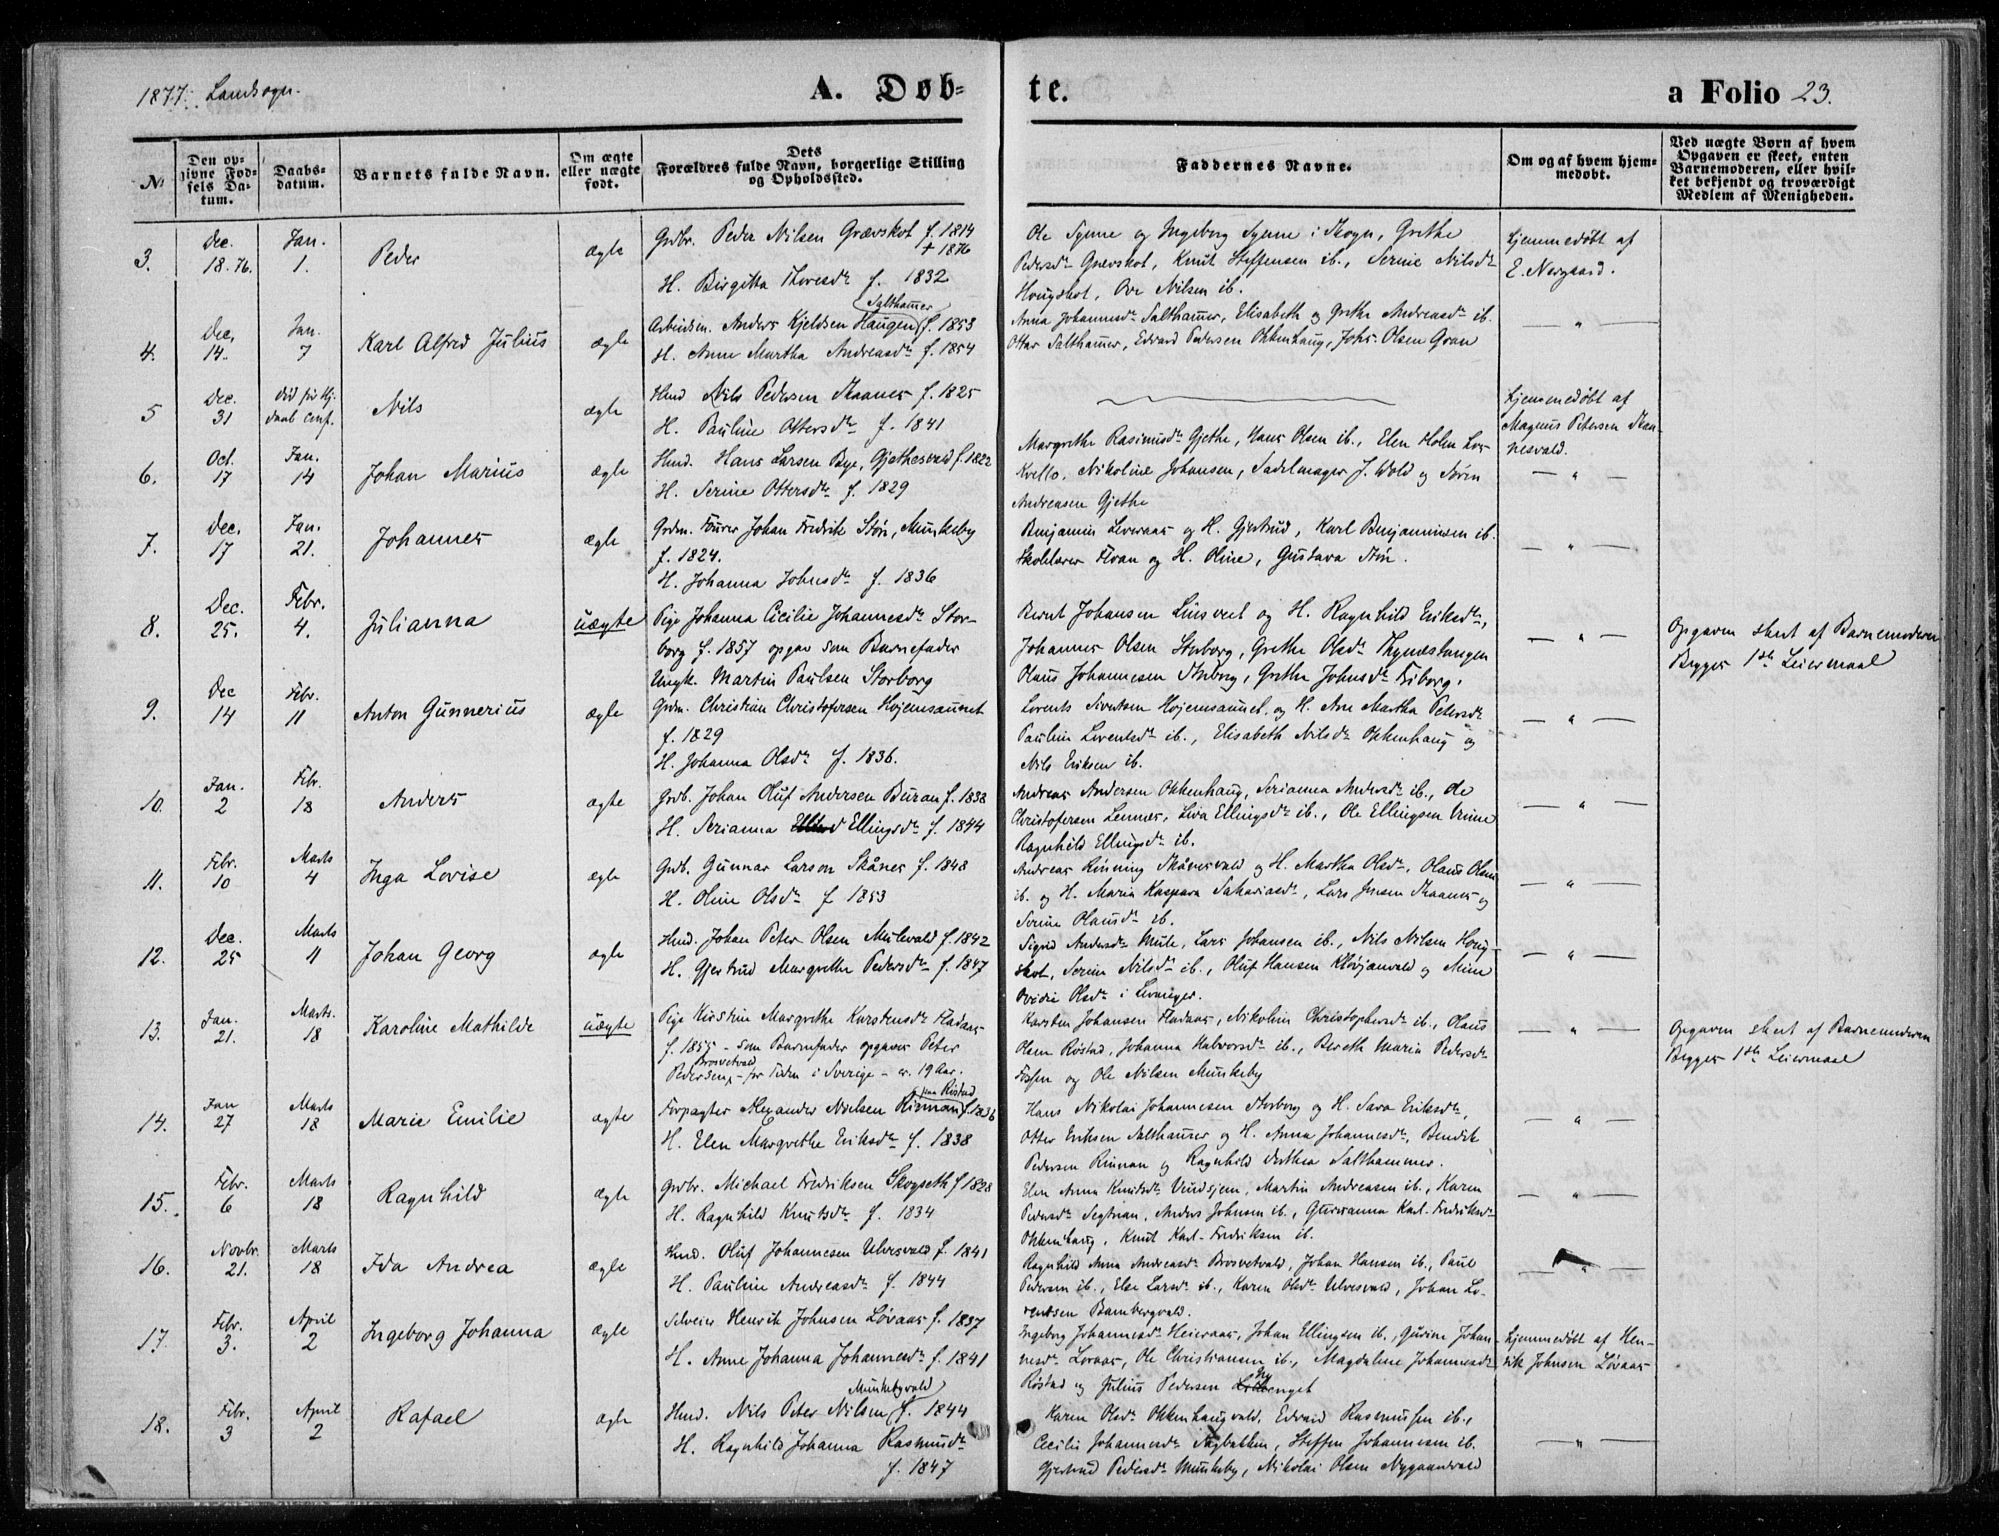 1877. Landsogn.
A. Døb-
te.
a Folio 23.
No
Den op-
givne Fød-
sels Da-
tum.
Daabs-
datum.
Barnets fulde Navn.
Om ægte
eller uægte
født.
Dets
Forældres fulde Navn, borgerlige Stilling
og Opholdssted.
Faddernes Navne.
Om og af hvem hjem-
medøbt.
Ved uægte Børn af hvem
Opgaven er skeet, enten
Barnemoderen, eller hvil-
ket bekjendt og troværdigt
Medlem af Menigheden.
3.
Dec.
18. 76.
Jan.
1.
Peder
ægte
Grdbr. Peder Nilsen Grævskot f. 1814
+ 1876
H. Birgitta Thoresdr f. 1832
Ole Synne og Ingeborg Synne i Skogn, Grethe
Pedersdr Grævskot, Knut Steffensen ib., Serine Nilsdr
Hougskot, Ove Nilsen ib.
hjemmedøbt af
E. Nergaard.
4.
Dec.
14.
Jan.
7
Karl Alfred Julius
ægte
Salthammer
Arbeidsm. Anders Kjeldsen Haugen f. 1853
H. Anne Martha Andreasdr f. 1854
Anna Johannesdr Salthammer, Elisabeth og Grethe Andreasdr ib.
Ottar Salthammer, Edvard Pedersen Okkenhaug, Johs. Olsen Gran
— " —
5
Dec.
31
død før Hj.
daab conf.
Nils
ægte
Hmd Nils Pedersen Skaanes f. 1825
H. Pauline Ottersdr f. 1841
hjemmedøbt af
Magnus Petersen Skaa-
nesvald.
6.
Oct.
17
Jan.
14
Johan Marius
ægte
Hmd. Hans Larsen Bye, Gjethesvald f. 1822
H. Serine Ottersdr f. 1829
Margrethe Rasmusdr Gjethe, Hans Olsen ib., Elen Holen
Kvello, Nikoline Johansen, Sadelmager J. Wold og Søren
Andreasen Gjethe
— " —
7.
Dec.
17
Jan.
21.
Johannes
ægte
Grdm. Fourer Johan Fredrik Støre, Munkeby
f. 1824.
H. Johanna Johnsdr f. 1836
Benjamin Leveraas og H. Gjertrud, Karl Benjaminsen ib.
Skolelærer Floan og H. Oline, Gustava Støre.
— " —
8.
Dec.
25.
Febr.
4.
Julianna
uægte
Pige Johanna Cicilie Johannesdr Stor-
borg f. 1857 opgav som Barnefader
Ungk. Martin Paulsen Storborg
Bernt Johansen Lunsveet og H. Ragnhild Eriksdr,
Johannes Olsen Storborg, Grethe Olsdr Thynæstangen
Olaus Johannesen Storborg, Grethe Johnsdr Friborg.
— " —
Opgaven skeet af Barnemoderen
Begges 1ste Leiermaal
9.
Dec
14
Febr.
11
Anton Gunnerius
ægte
Grdm. Christian Christofersen Hojemsaunet
f. 1829
H. Johanna Olsdr f. 1836.
Lorents Sivertsen Hojemsaunet og H. Ane Martha Petersdr
Pauline Lorentsdr ib., Elisabeth Nilsdr Okkenhaug og
Nils Eriksen ib.
— " —
10.
Jan.
2
Febr.
18
Anders
ægte
Grdb. Johan Oluf Andersen Buran f. 1838
H. Serianna Ellingsdr f. 1844
Andreas Andersen Okkenhaug, Serianna Andersdr ib., Ole
Christofersen Lennes, Liva Ellingsdr ib., Ole Ellingsen
Ragnhild Ellingsdr ib.
— " —
11.
Febr.
10
Marts
4
Inga Lovise
ægte
Grdb. Gunnar Larson Skånes f. 1848
H. Oline Olsdr f 1853
Andreas Rinning Skånesvald og H. Martha Olsdr, Olaus Olsen
ib. og H. Maria Kaspara Sakariasdr, Lars Jensen Skaanes og
Serine Olausdr ib.
— " —
12.
Dec.
25
Marts
11
Johan Georg
ægte
Hmd. Johan Peter Olsen Mulevald f. 1842
H. Gjertrud Margrethe Pedersdr f. 1847
Sigrid Andersdr Mule, Lars Johansen ib., Nils Nilsen Houg-
skot, Serine Nilsdr ib., Oluf Hansen Kløvjanvald og Mine
Ovidie Olsdr i Levanger.
— " —
13.
Jan.
21.
Marts.
18
Karoline Mathilde
uægte
Pige Kirstine Margrethe Karstensdr Fladaas
f. 1855 - som Barnefader opgaves Peter
Brosvetvald
Pedersen, - før Tiden i Sverige - er 19 Aar.
Karsten Johansen Fladaas, Nikoline Christophersdr ib., Olaus
Olsen Røstad, Johanna Halvorsdr ib., Bereth Maria Pedersdr
Fossen og Ole Nilsen Munkeby
— " —
Opgaven skeet af Barnemoderen
Begges 1ste Leiermaal
14.
Jan
27
Marts
18
Marie Emilie
ægte
paa Ristad
Forpagter Alexander Nielsen Rinnan f. 1836
H. Elen Margrethe Eriksdr f. 1838
Hans Nikolai Johannesen Storborg og H. Sara Eriksdr,
Otter Eriksen Salthammer og H. Anna Johannesdr, Bendik
Pedersen Rinnan og Ragnhild Dorthea Salthammer.
— " —
15.
Febr.
6
Marts
18
Ragnhild
ægte
Grdbr. Michael Fredriksen Skogseth f 1828
H. Ragnhild Knutsdr f. 1834
Elen Anna Knutsdr Vindsjem, Martin Andreasen ib., Karen
Pedersdr Segtnan, Anders Johnsen ib., Gurianna Karl-Fredriksdr
Okkenhaug, Knut Karl-Fredriksen ib.
— " —
16.
Novbr.
21.
Marts
18
Ida Andrea
ægte
Hmd. Oluf Johannesen Ulvesvald f. 1841
H. Pauline Andreasdr f. 1844
Ragnhild Anna Andreasdr Brosvetvald, Johan Hansen ib., Paul
Pedersen ib., Else Larsdr ib., Karen Olsdr Ulvesvald, Johan Lo-
rentsen Bambergvald.
— " —
17.
Febr.
3.
April
2
Ingeborg Johanna
ægte
Selveier Henrik Johnsen Løvaas f. 1837
H. Anne Johanna Johannesdr f. 1841
Ingeborg Johannesdr Heieraas, Johan Ellingsen ib., Gurine Johan-
nesdr Lovaas, Ole Christiansen ib., Magdalene Johannesdr
Røstad og Julius Pedersen
hjemmedøbt af Hen-
rik Johnsen Løvaas
18.
Febr.
3
April
2
Rafael
ægte
Munkebyvald
Hmd. Nils Peter Nilsen f. 1844
H. Ragnhild Johanna Rasmusdr
f. 1847
Karen Olsdr Okkenhaugvald, Edvard Rasmussen ib.,
Cecilie Johannesdr Sagbakken, Steffen Johannesen ib.
Gjertrud Pedersdr Munkeby, Nikolai Olsen Nygaardvald
— " —